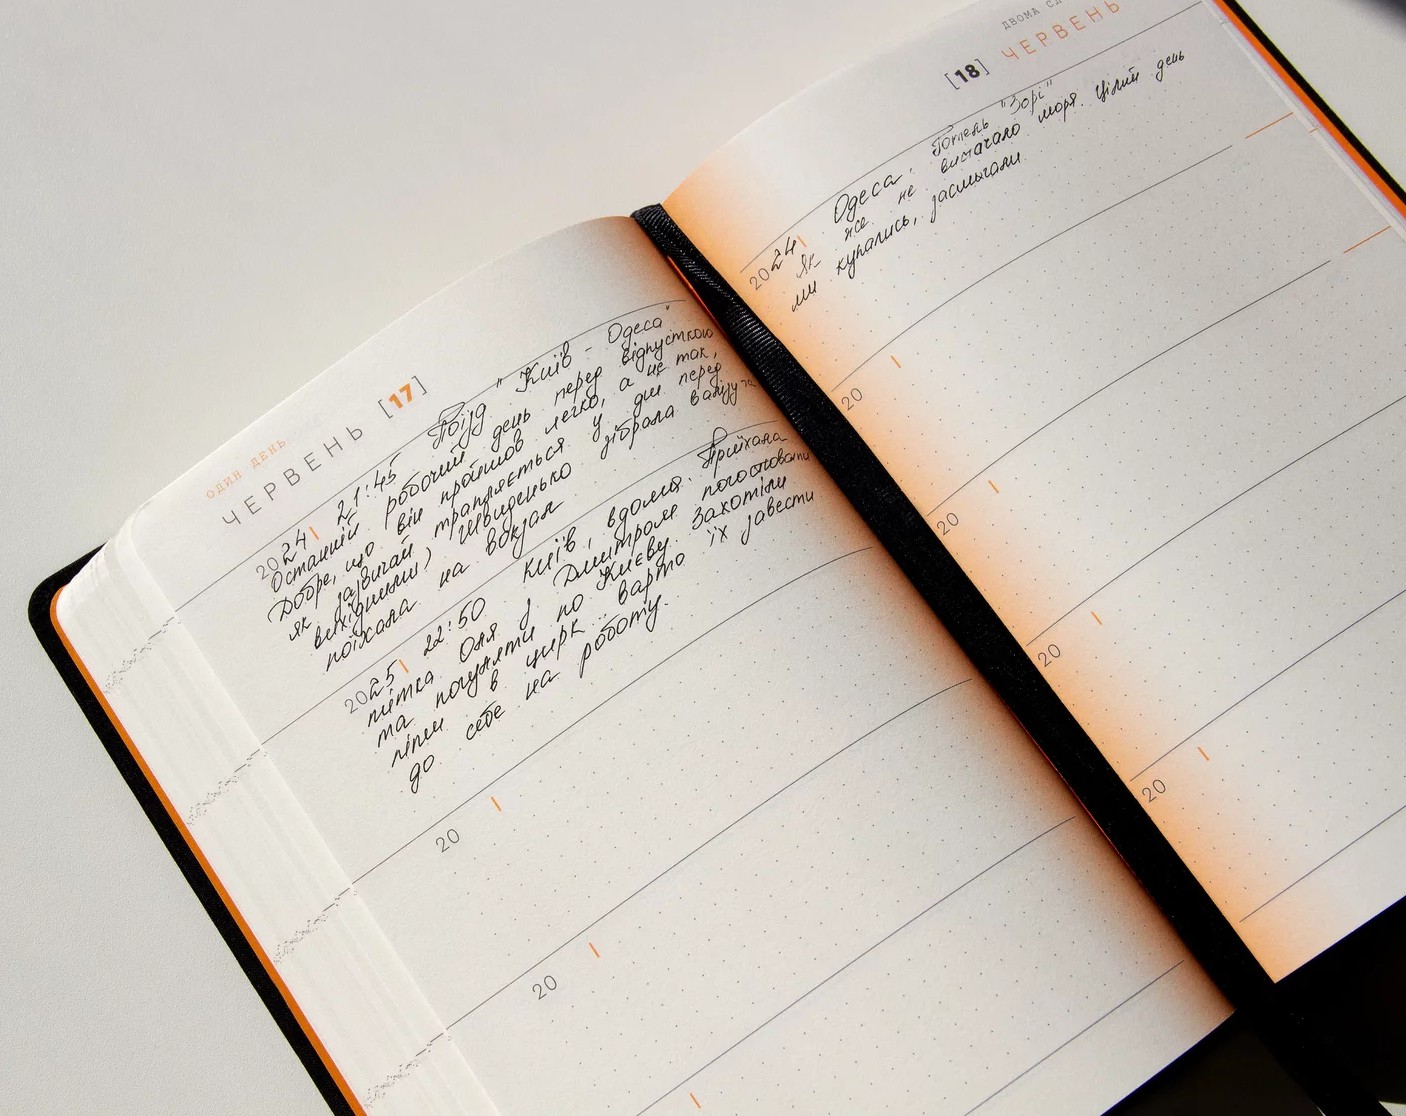 ОДИН ДЕНЬ
ЧЕРВЕНЬ [17]
2024 21:45 Поїзд "Київ - Одеса"
Останній робочий день перед відпусткою
Добре, що він пройшов легко, а не так,
як зазвичай трапляється у дні перед
вихідними) Швиденько зібрала валізу та
поїхала на вокзал
2025 22:50 Київ, вдома. Приїхала
тітка Оля з Дмитром погостювати
та погуляти по Києву. Захотіли
піти в цирк.. варто їх завести
до себе на роботу.
20
20
ДВОМА
[18] ЧЕРВЕНЬ
2024 Одеса. Готель "Зорі"
Як же не вистачало моря. Цілий день
ми купались, засмагали
20
20
20
20